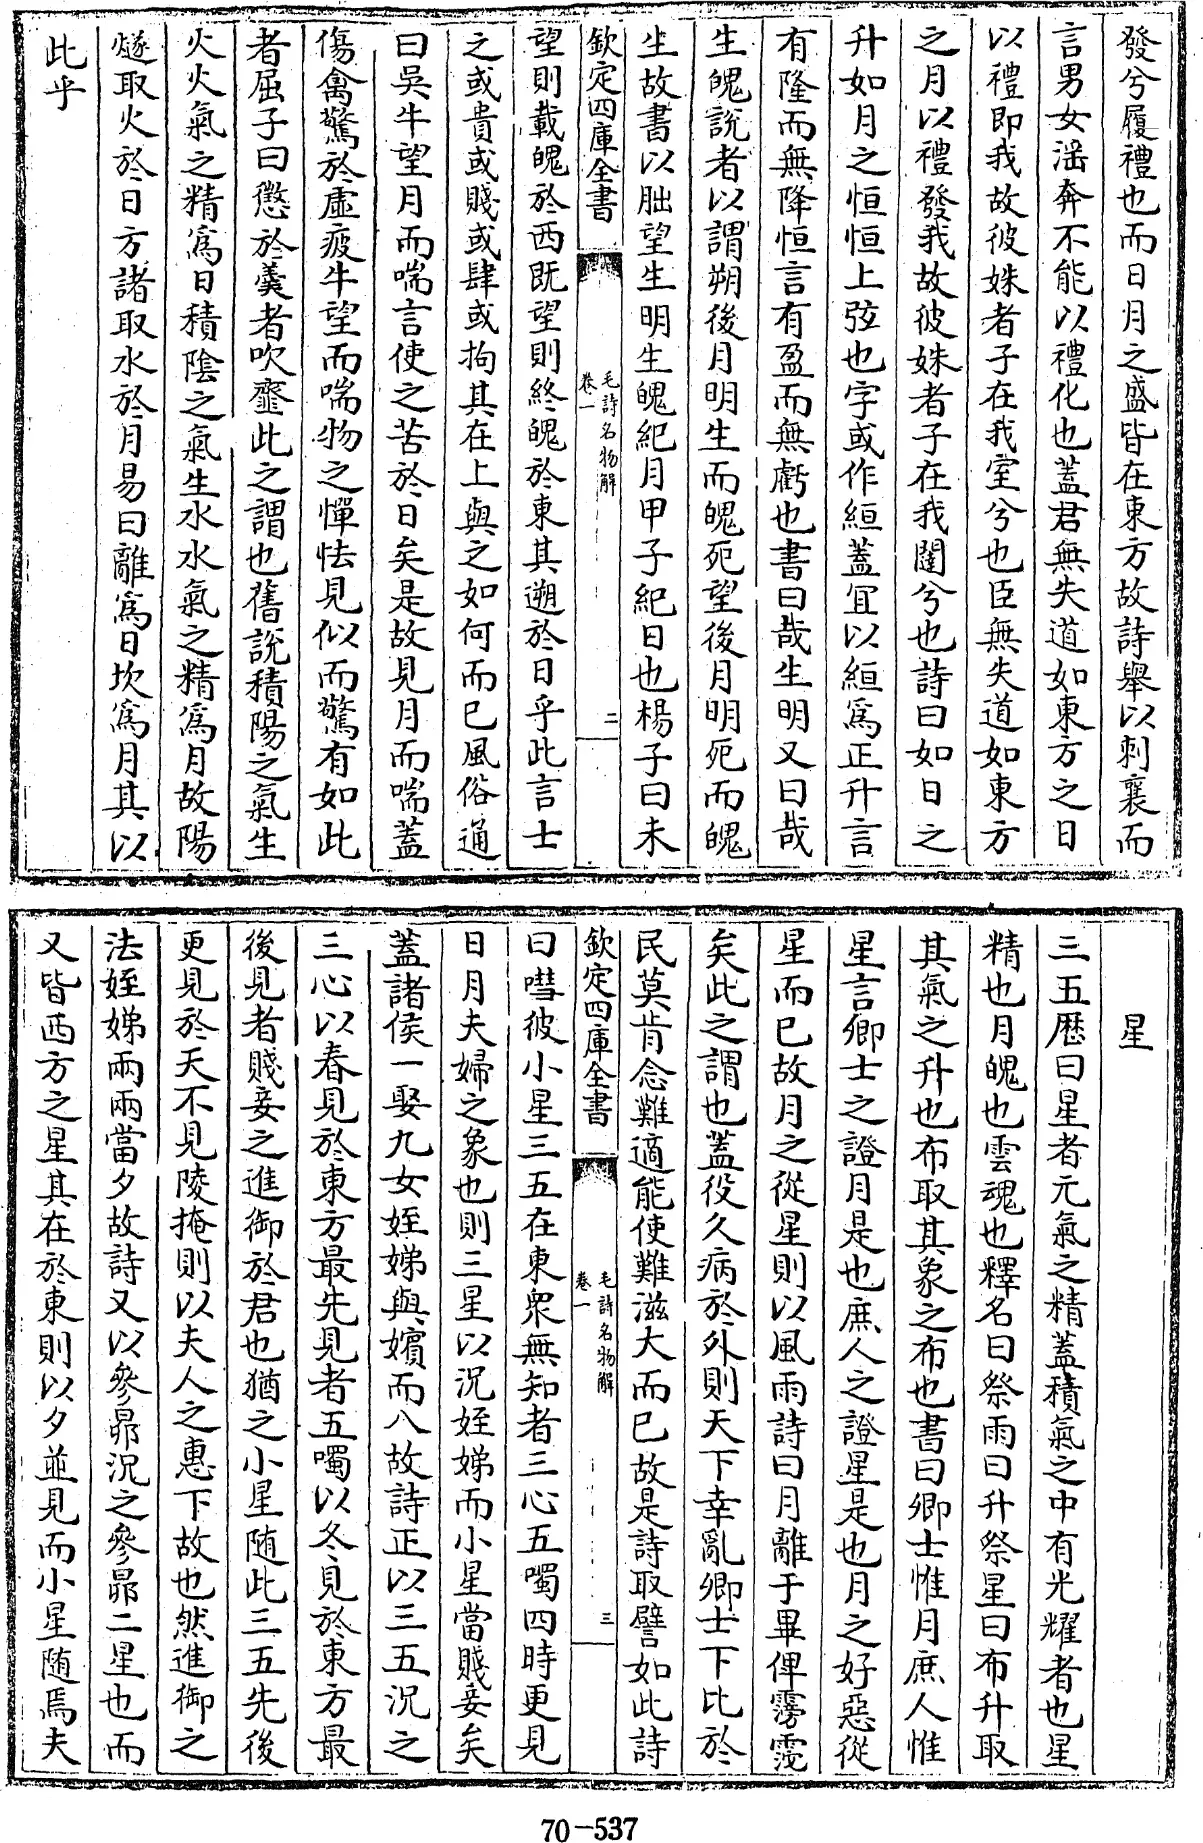 發兮履禮也而日月之盛皆在東方故詩舉以刺襄而
言男女淫奔不能以禮化也蓋君無失道如東方之日
以禮即我故彼姝者子在我室兮也臣無失道如東方
之月以禮發我故彼姝者子在我闥兮也詩曰如日之
升如月之恒恒上弦也字或作絚蓋宜以絚為正升言
有隆而無降恒言有盈而無虧也書曰哉生明又曰哉
生魄說者以謂朔後月明生而魄死望後月明死而魄
生故書以朏望生明生魄紀月甲子紀日也楊子曰未
欽定四庫全書
毛詩名物解
卷一
二
望則載魄於西既望則終魄於東其遡於日乎此言士
之或貴或賤或肆或拘其在上與之如何而已風俗通
曰吳牛望月而喘言使之苦於日矣是故見月而喘蓋
傷禽驚於虛疲牛望而喘物之憚怯見似而驚有如此
者屈子曰懲於羹者吹虀此之謂也舊說積陽之氣生
火火氣之精為日積陰之氣生水水氣之精為月故陽
燧取火於日方諸取水於月易曰離為日坎為月其以
此乎
星
三五厯曰星者元氣之精蓋積氣之中有光耀者也星
精也月魄也雲魂也釋名曰祭雨曰升祭星曰布升取
其氣之升也布取其象之布也書曰卿士惟月庶人惟
星言卿士之證月是也庶人之證星是也月之好惡從
星而已故月之從星則以風雨詩曰月離于畢俾霶霑
矣此之謂也蓋役久病於外則天下幸亂卿士下比於
民莫肯念難適能使難滋大而已故是詩取譬如此詩
欽定四庫全書
毛詩名物解
卷一
三
曰嘒彼小星三五在東衆無知者三心五噣四時更見
日月夫婦之象也則三星以況姪娣而小星當賤妾矣
蓋諸侯一娶九女姪娣與嬪而八故詩正以三五況之
三心以春見於東方最先見者五噣以冬見於東方最
後見者賤妾之進御於君也猶之小星隨此三五先後
更見於天不見陵掩則以夫人之惠下故也然進御之
法姪娣兩兩當夕故詩又以參昴況之參昴二星也而
又皆西方之星其在於東則以夕並見而小星隨焉夫
70-537